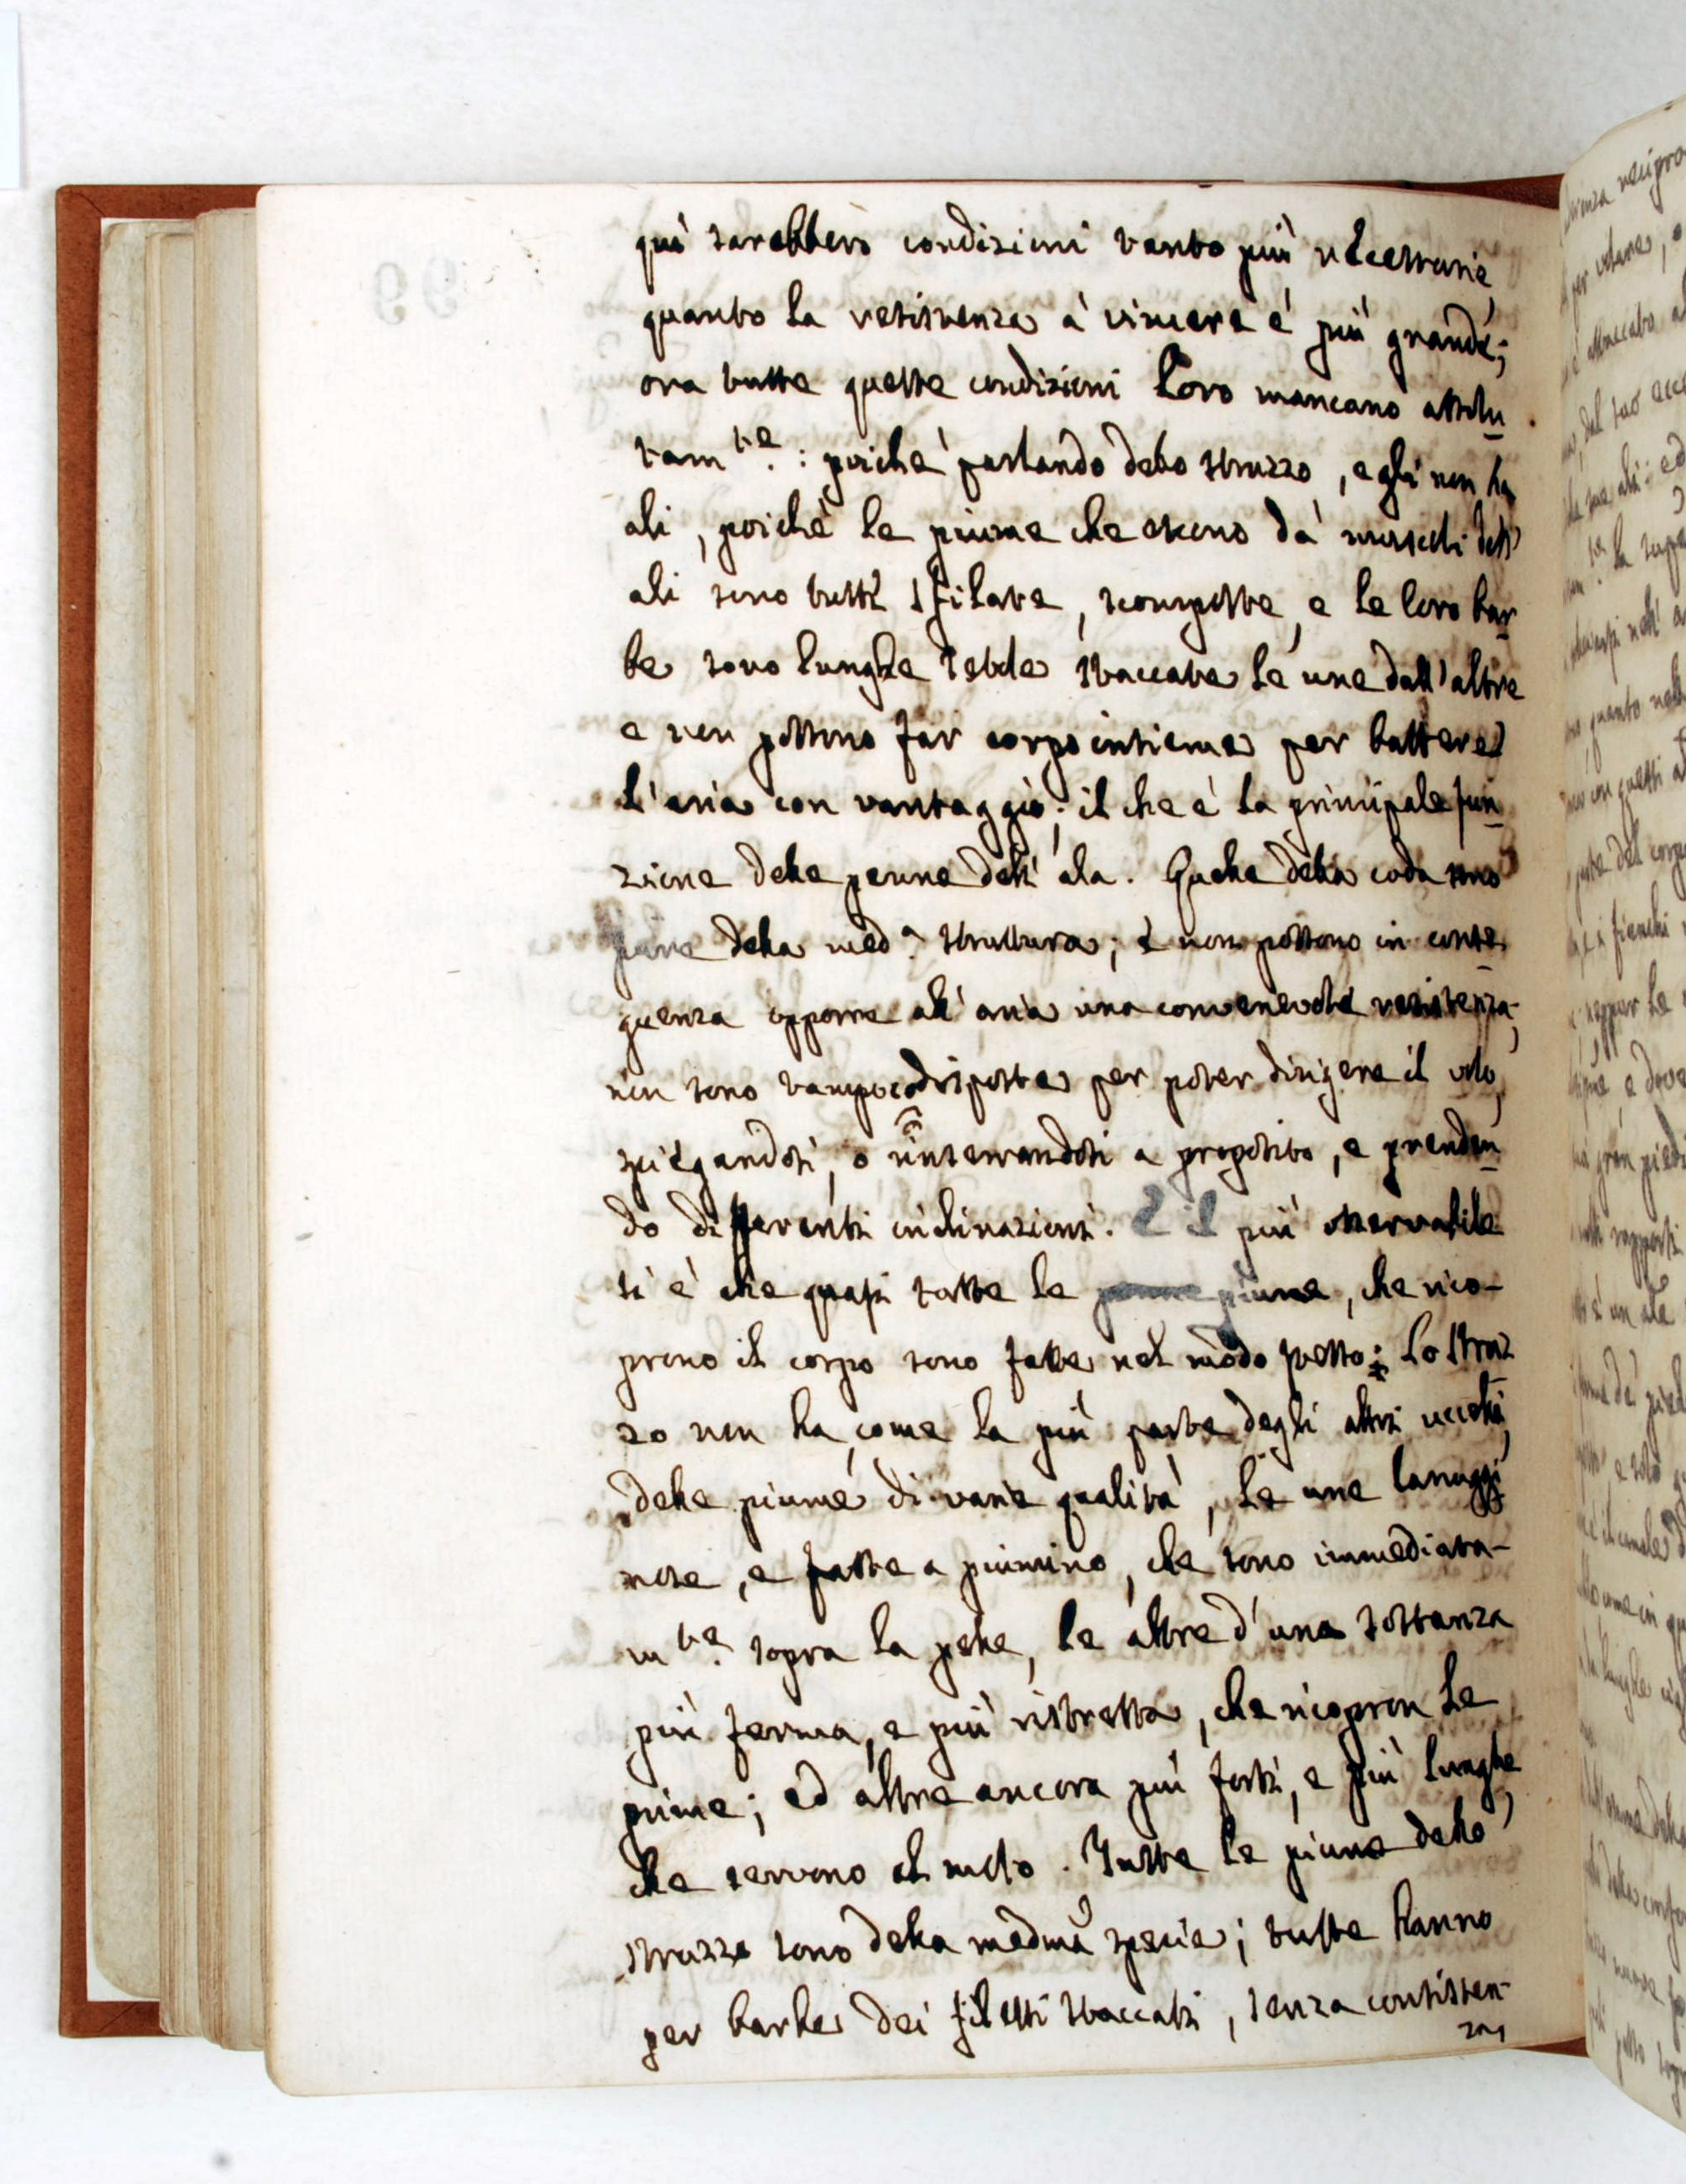 qui sarebbero condizioni tanto più necessarie
quanto la resistenza à vincere è più grande;
ora tutte queste condizioni loro mancano assolu
tam.te: poichè parlando dello struzzo, egli non ha
ali, poichè le piume che escono da' muscoli dell'
ali sono tutti sfilate, scomposte, e le loro bar
be sono lunghe sete staccate le une dall'altre
e non possono far corpo insieme per battere
l'aria con vantaggio; il che è la principale fun
zione delle penne dell'ala. Quelle della coda sono
pure della med.a struttura; e non possono in conse
guenza opporre all'aria una convenevole resistenza;
non sono tampoco disposte per poter dirigere il volo,
spiegandosi, o rinserrandosi a proposito, e prenden
do differenti inclinazioni. E il più osservabile
si è che quasi tutte le penne piume, che rico-
prono il corpo sono fatte nel modo stesso: Lo struz
zo non ha, come la più parte degli altri uccelli,
delle piume di varie qualità, le une lanuggi
nose, e fatte a piumino, che sono immediata-
m.te sopra la pelle, le altre d'una sostanza
più ferma, e più ristretta, che ricopron le
prime; ed altre ancora più forti, e più lunghe,
che servono al moto. Tutte le piume dello
struzzo sono della medma specie; tutte hanno
per barbe dei filetti staccati, senza consisten-
za,